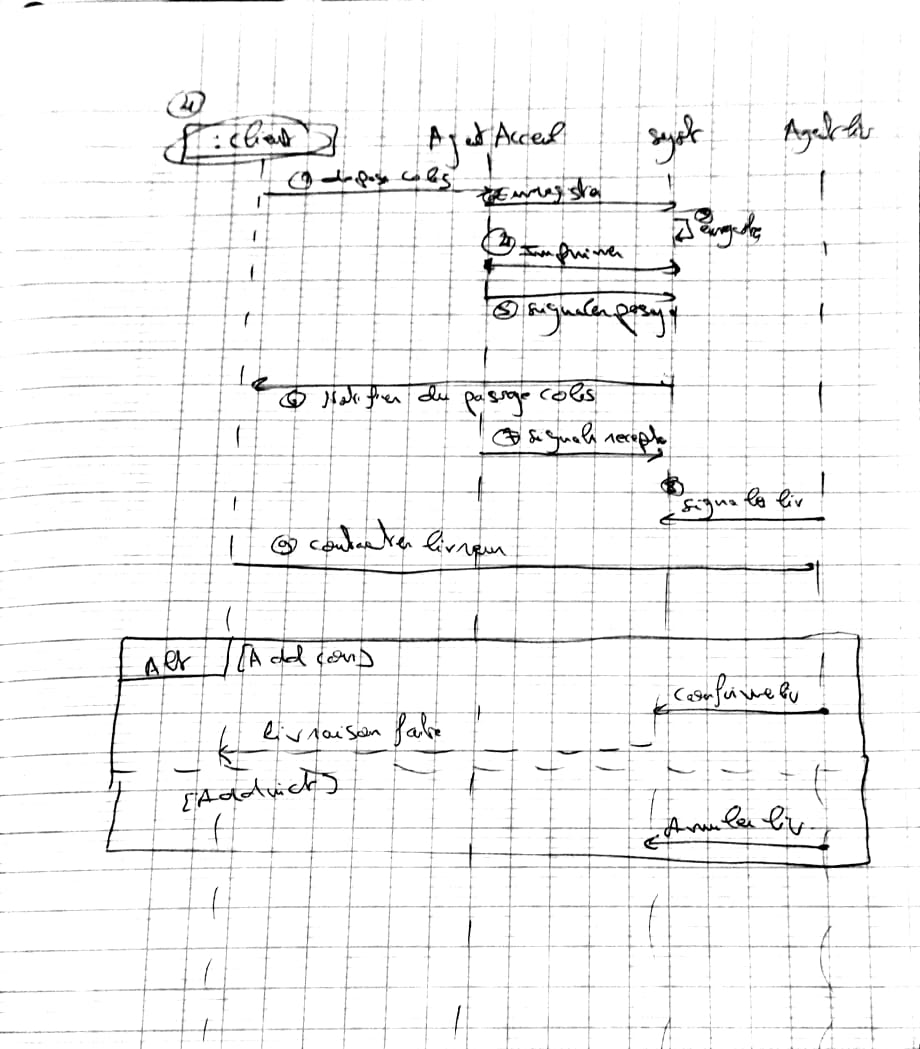 4
: client
Agent Acceil
syst
Agent liv
① depose colis
② Enregistra
③ enregistre
④ Imprimer
⑤ signaler passg
⑥ Notifier du passage colis
⑦ signale recepti
⑧ signale liv
⑨ contacter livreur
Alt
[Add con]
Confirme liv
livraison faite
Annuler liv.